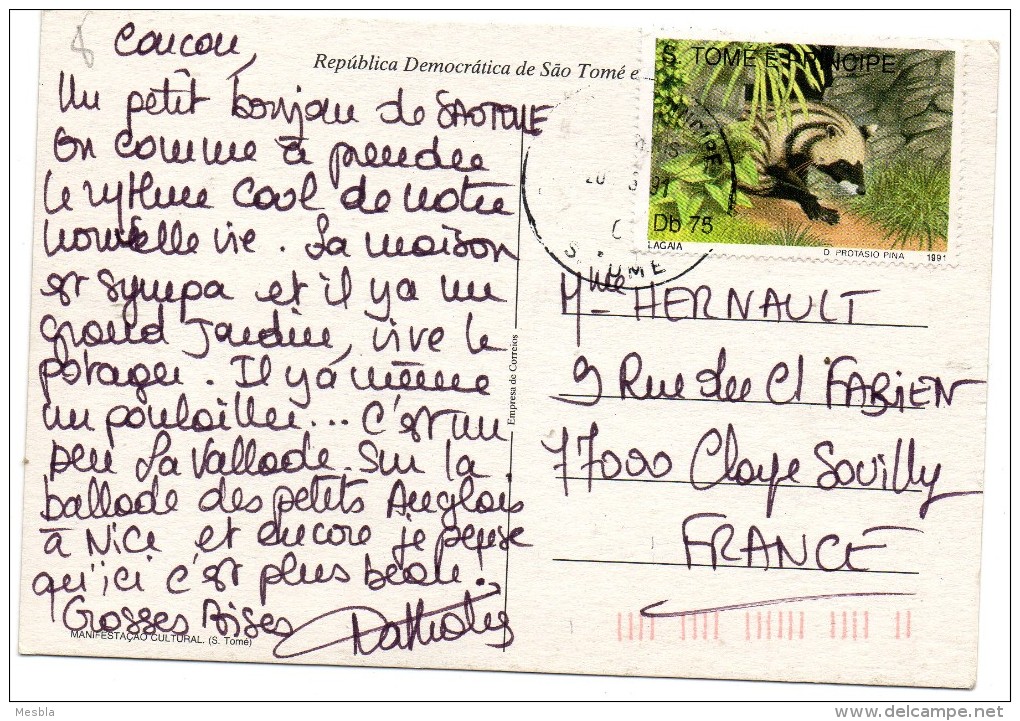 Coucou,
Un petit bonjour de SAOTOME
on commence à prendre
le rythme cool de notre
nouvelle vie. La maison
est sympa et il y a un
grand Jardin, vive le
potager. Il y a même
un poulailler... C'est un
peu La Vallade sur la
ballade des petits Anglais
à Nice et encore je pense
qu'ici c'est plus beau!
Grosses Bises
MANIFESTAÇÃO CULTURAL. (S. Tomé)
República Democrática de São Tomé e
Empresa de Correios
S. TOMÉ E PRÍNCIPE
Db 75
LAGAIA
D. PROTASIO PINA 1991
Mme HERNAULT
9 Rue du Cl FABIEN
77000 Claye Souilly
FRANCE
Mesbla
delcampe.net